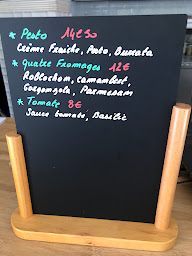 * Pesto 14€50
Crème Fraîche, Pesto, Burrata
* Quatre Fromages 12€
Roblochon, camembert,
Gorgonzola, Parmesan
* Tomate 8€
Sauce tomate, Basilic